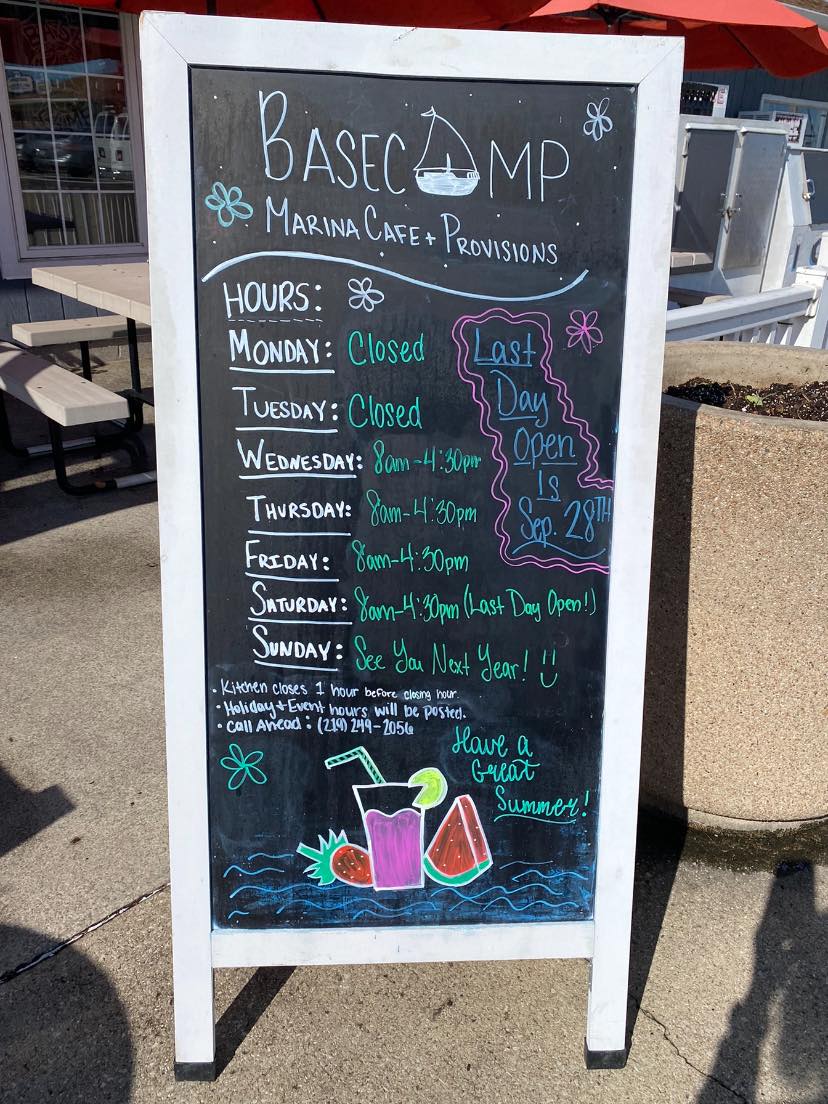 BASECAMP
MARINA CAFE + PROVISIONS
HOURS:
MONDAY: Closed
TUESDAY: Closed
WEDNESDAY: 8am-4:30pm
THURSDAY: 8am-4:30pm
FRIDAY: 8am-4:30pm
SATURDAY: 8am-4:30pm (Last Day Open!)
SUNDAY: See You Next Year! :)
Last
Day
Open
Is
Sep. 28TH
• Kitchen closes 1 hour before closing hour.
• Holiday + Event hours will be posted.
• Call Ahead: (219) 249-2056
Have a
Great
Summer!